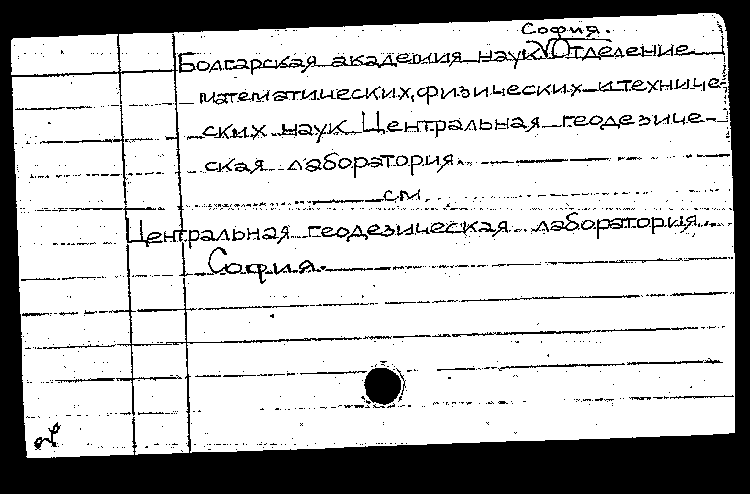 София.
Болгарская академия наук. Отделение
математических, физических и техниче-
ских наук. Центральная геодезиче-
ская лаборатория.
см.
Центральная геодезическая лаборатория.
София.